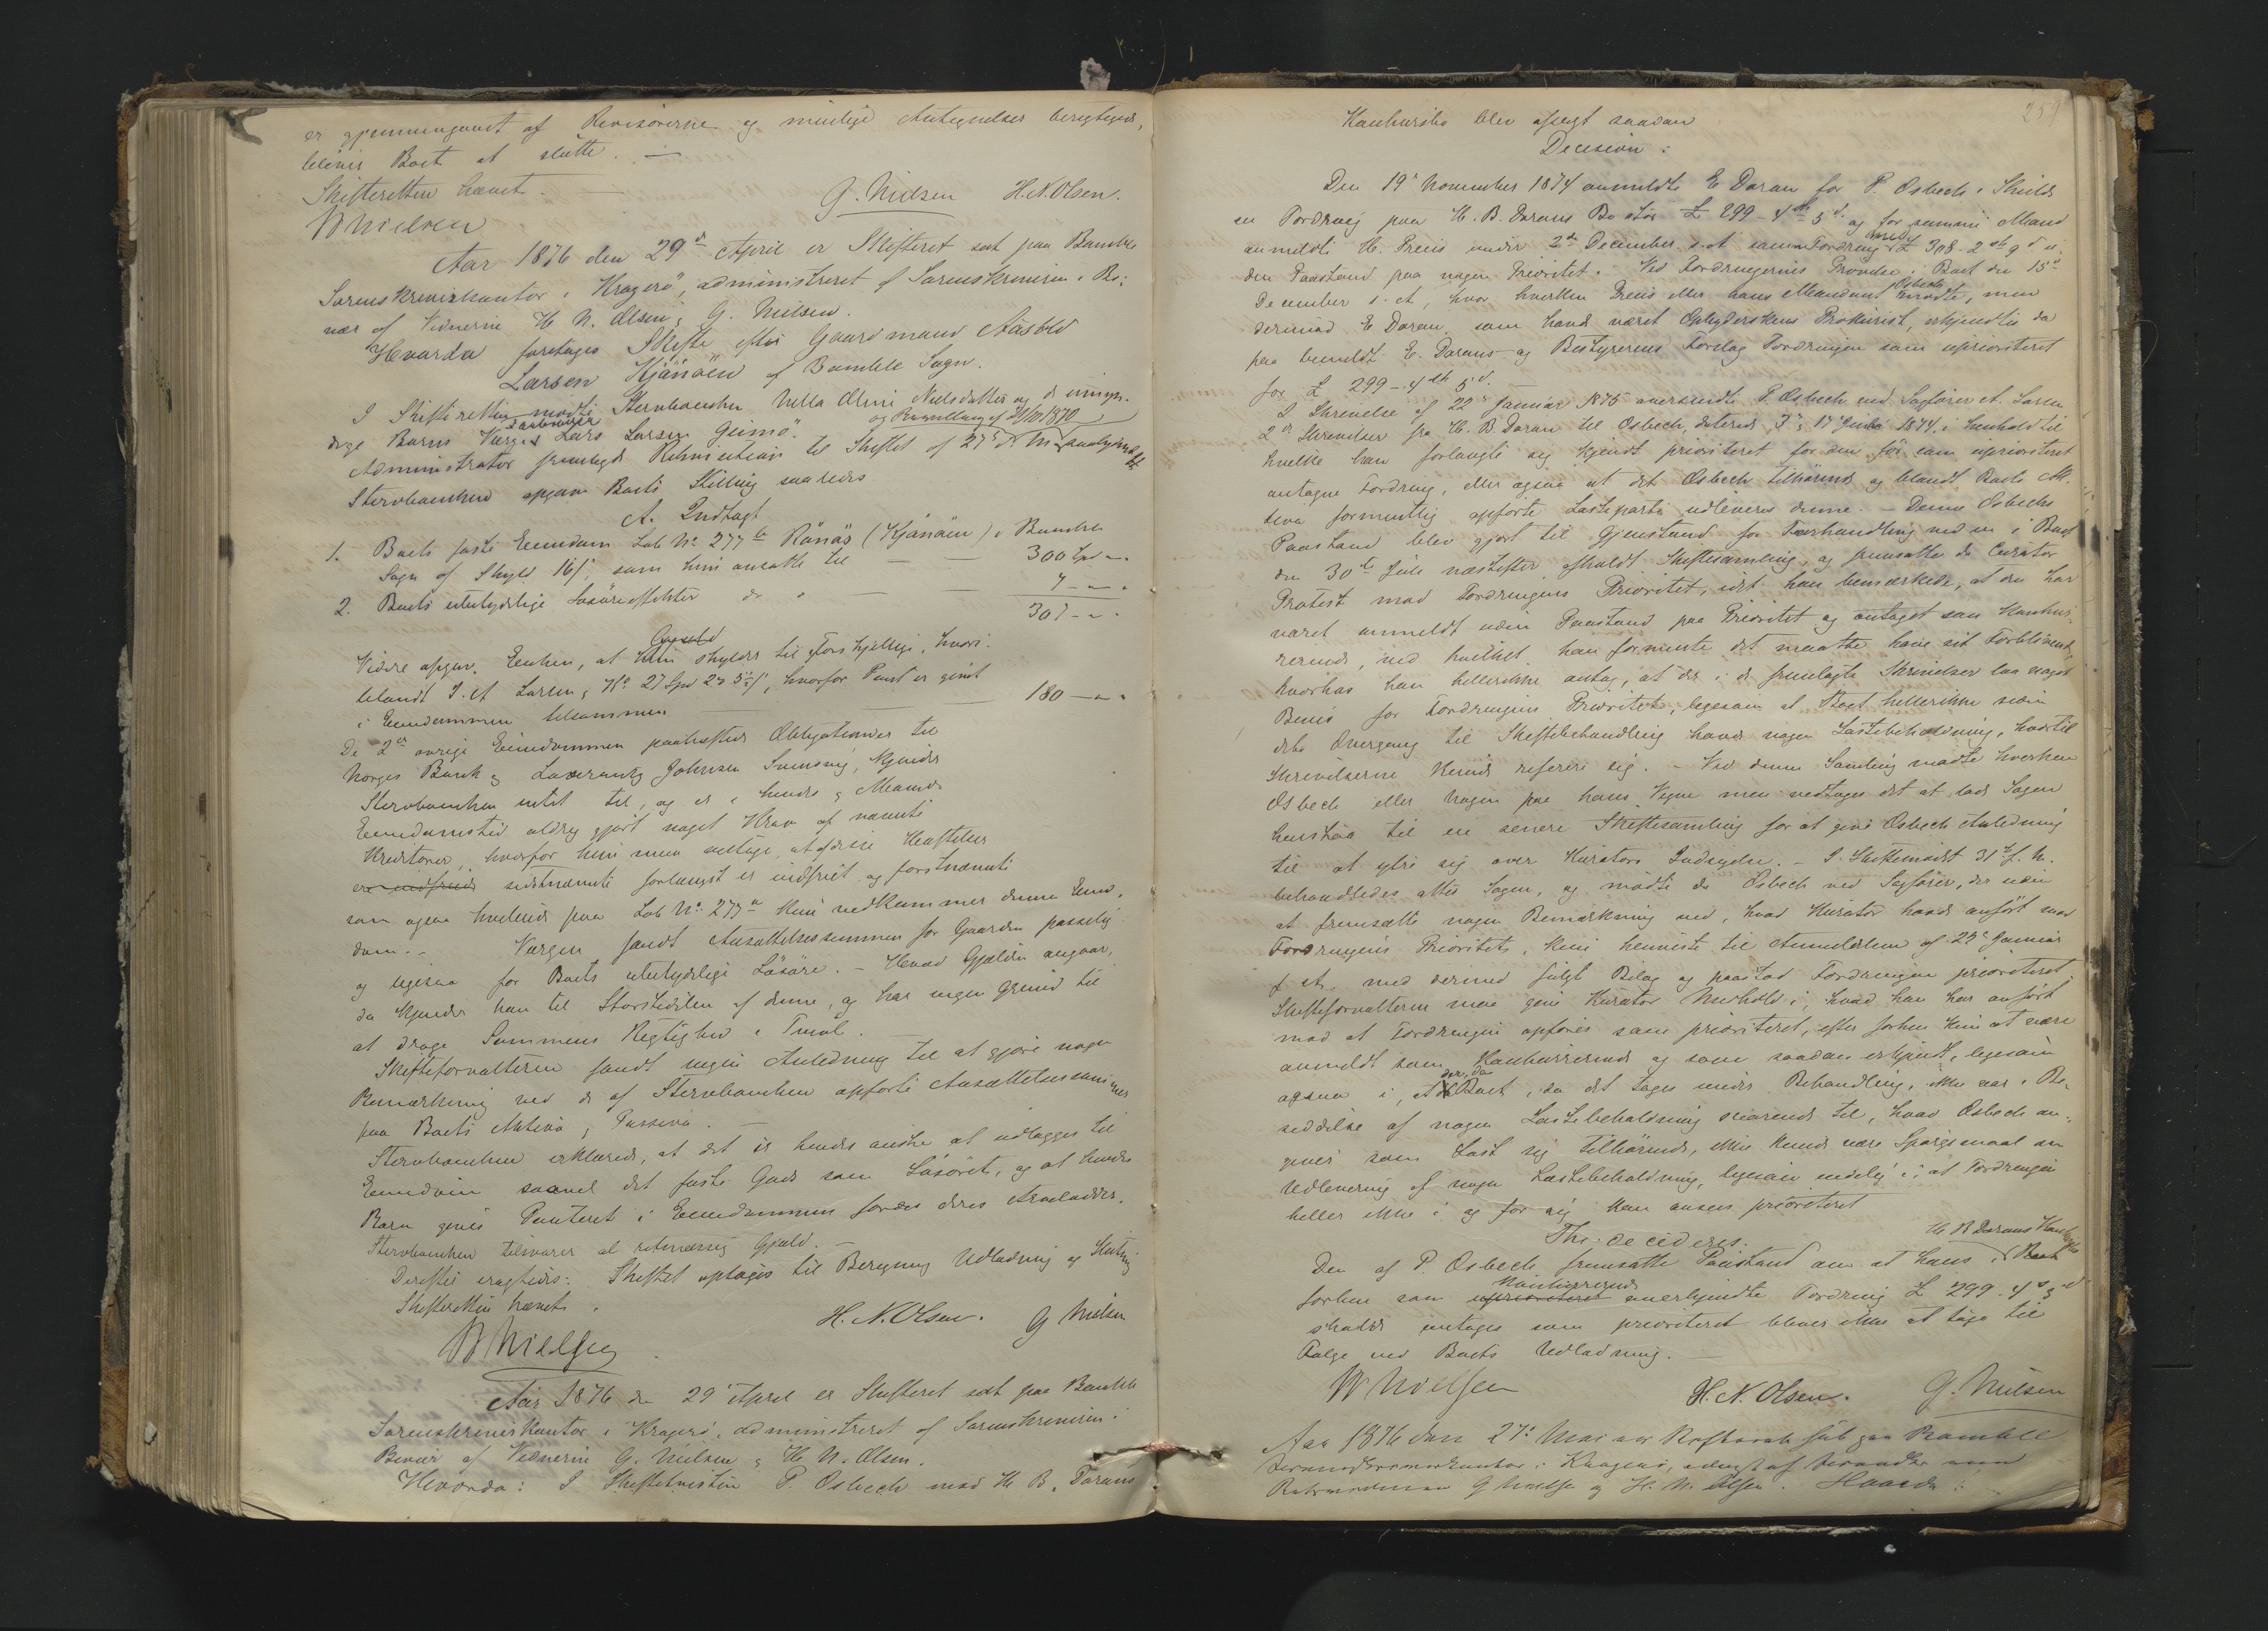 er gjennemgaaet af Revisorerne og mulige Antegnelser berigtigede,
bliver Boet at slutte. —
Skifteretten hævet. —
G. Nielsen H. N. Olsen.
W Nielsen
Aar 1876 den 29de April er Skifteret sat paa Bamble
Sorenskriverkontor i Kragerö, administreret af Sorenskriveren i Bi-
vær af Vidnerne H. N. Olsen & G. Nielsen.
Hvorda foretages Skifte efter Gaardmand Aasold
Larsen Kjönöen af Bamble Sogn.
I Skifteretten mödte Stervboenken Nella Oline Nielsdatter og de umyn-
og Bevilling af 21/10 1870
dige Börns Værge Farbroder Lars Larsen Geimö.
Administrator fremlagde Rekvisition til Skiftet af 27de ds M
Stervboenken opgav Boets Stilling saaledes
A. Indtægt
1. Boets faste Eiendom Löb No 277 b Rönäs (Kjönöen) i Bamble
Sogn af Skyld 16 ſ, som hun ansatte til — 300 Spd " "
2. Boets ubetydelige Lösöreeffekter do " — 7 - " "
307 - " "
Videre opgav Enken, at Boet skylder til Forskjellige, hvori-
blandt J. A. Larsen, Kö 27 Spd 2 ß 5½ ſ, hvorfor Pant er givet
i Eiendommen tilsammen — 180 - " "
De 2de övrige Eiendommen paaheftede Obligationer til
Norges Bank og Laurantz Johnsen Svensvig, kjender
Stervboenken intet til, og er i hendes & Mands
Eiendomstid aldrig gjort noget Krav af nævnte
Kreditorer, hvorfor hun maa antage, at disse Heftelser
er indfriede sidstnævnte forlængst er indfriet og förstnævnte
som ogsaa heftende paa Löb No 277 a kun vedkommer denne Eien-
dom. — Værgen fandt Ansættelsessummen for Gaarden passelig
og ligesaa for Boets ubetydelige Lösöre. — Hvad Gjælden angaar,
da kjender han til Störstedelen af denne, og har ingen Grund til
at drage Summens Rigtighed i Tvivl.
Skifteforvalteren fandt ingen Anledning til at gjöre nogen
Bemærkning ved de af Stervboenken opförte Ansættelsessummer
paa Boets Aktiva & Passiva.
Stervboenken erklærede, at det er hendes Önske at udlægges til
Eiendom saavel det faste Gods som Lösöret, og at hendes
Barn gives Panteret i Eiendommen for deres Arvelodder.
Stervboenken tilsvarer al retmæssig Gjæld.
Derefter eragtedes: Skiftet optages til Beregning Udlodning og Slutning
Skifteretten hævet.
H. N. Olsen. G Nielsen
W Nielsen
Aar 1876 den 29 April er Skifteret sat paa Bamble
Sorenskriverkontor i Kragerö, administreret af Sorenskriveren i
Bivær af Vidnerne G. Nielsen & H. N. Olsen.
Hvorda: I Skiftetvisten P. Osbech mod H. B. Dorans
259
Konkursbo blev afsagt saadan
Decision:
Den 19de November 1874 anmeldte E Doran for P. Osbech i Shields
en Fordring paa H. B. Dorans Bo stor £ 299 - 4 sh 5 d. og for samme Mand
anmeldte H. Preus under 2den December s. A. samme Fordring med £ 308 - 2 sh 9 d u-
den Paastand paa nogen Prioritet. Ved Fordringernes Prövelse i Boet den 15de
December s. A., hvor hverken Preus eller hans Mandant Osbech mödte, men
derimod E Doran, som havde været Opbyderskens Prokurist, erkjendtes da
paa bemeldte E. Dorans og Bestyrerens Forslag Fordringen som uprioriteret
for £ 299 - 4 sh 5 d.
I Skrivelse af 22de Januar 1875 oversendte P. Osbech ved Sagförer A. Larsen
2de Skrivelser fra H. B. Doran til Osbech, daterede 7de & 17 Juli 1874, i Henhold til
hvilke han forlangte sig kjendt prioriteret for den för som uprioriteret
antagne Fordring, eller ogsaa at det Osbech tilhörende og blandt Boets Ak-
tiva formentlig opförte Lasteparti udleveres denne. — Denne Osbechs
Paastand blev gjort til Gjenstand for Forhandling ved en i Boet
den 30te Juli næstefter afholdt Skiftesamling, og fremsatte da Curator
Protest mod Fordringens Prioritet, idet han bemærkede, at den har
været anmeldt uden Paastand paa Prioritet og antaget som Konkur-
rerende, ved hvilket han formente det maatte have sit Forblivende,
hvorhos han hellerikke antog, at der i de fremlagte Skrivelser laa noget
Bevis for Fordringens Prioritet, ligesom at Boet hellerikke siden
dets Overgang til Skiftebehandling havde nogen Lastebeholdning, hvortil
Skrivelserne kunde referere sig. — Ved denne Samling mödte hverken
Osbech eller nogen paa hans Vegne men vedtoges det at lade Sagen
henstaa til en senere Skiftesamling for at give Osbech Anledning
til at ytre sig over Kurators Indsigelse. — I Skiftemödet 31te f. M.
behandledes atter Sagen, og mödte da Osbech ved Sagförer, der uden
at fremsætte nogen Bemærkning ved, hvad Kurator havde anfört mod
Fordringens Prioritet, kun henviste til Anmeldelsen af 22de Januar
f. A. med dermed fulgt Bilag og paastod Fordringen prioriteret.
Skifteforvalteren maa give Kurator Medhold i, hvad han har anfört
mod at Fordringen opföres som prioriteret, efter forhen kun at være
anmeldt som Konkurrerende og som saadan erkjendt, ligesom
ogsaa i, at der, da Boet, da det toges under Behandling, ikke var i Be-
siddelse af nogen Lastebeholdning svarende til, hvad Osbech an-
giver som Last sig tilhörende, ikke kunde være Spörgsmaal om
Udlevering af nogen Lastebeholdning, ligesom endelig i, at Fordringen
heller ikke i og for sig kan ansees prioriteret
Thi decideres:
Den af P. Osbech fremsatte Paastand om at hans i H. B Dorans Konkurs Boet
forhen som uprioriteret Konkurrerende anerkjendte Fordring £ 299 - 4 s 5 d
skulde antages som prioriteret bliver ikke at tage til
Fölge ved Boets Udlodning. —
W Nielsen H. N. Olsen. G. Nielsen
Aar 1876 den 27de Mai var Skifteret sat paa Bamble
Sorenskriverkontor i Kragerö,
G Nielsen og H. N. Olsen. Hvorda: